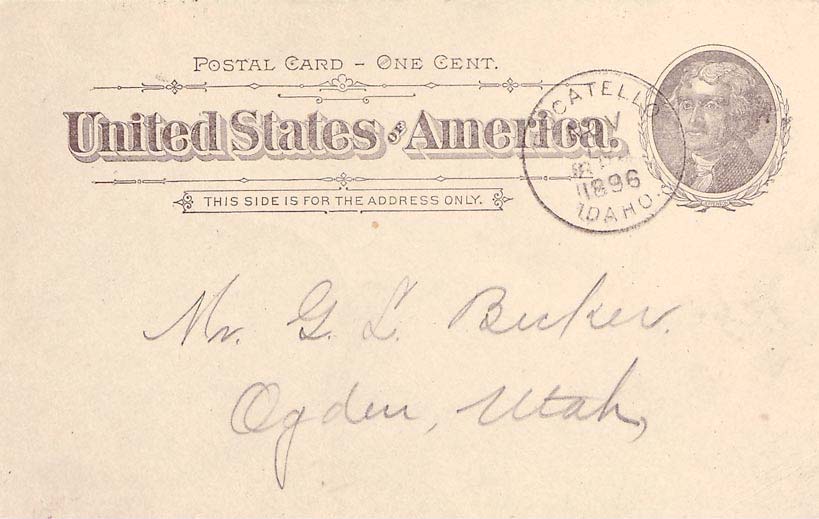 POSTAL CARD – ONE CENT.
United States OF America.
THIS SIDE IS FOR THE ADDRESS ONLY.
POCATELLO
NOV
1896
IDAHO.
Mr. G. L. Becker.
Ogden, Utah,